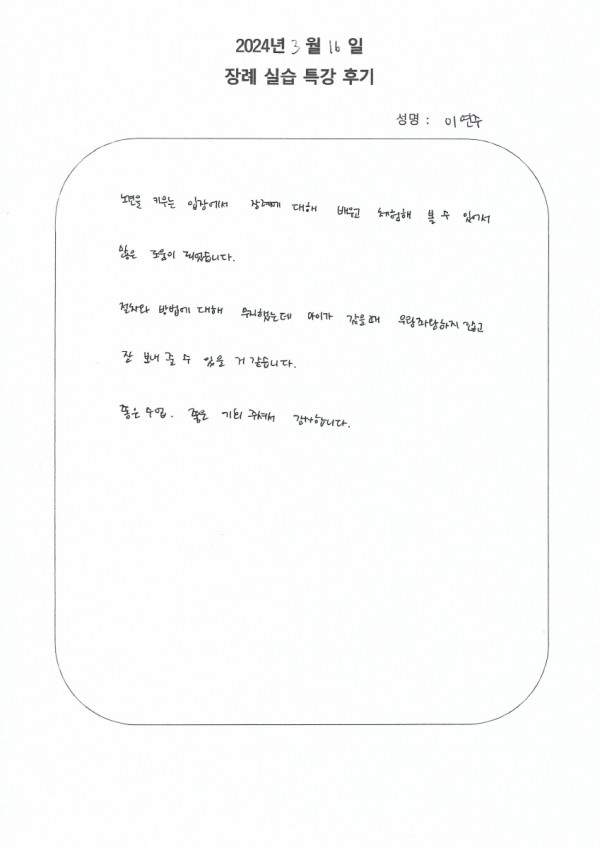 2024년 3월 16일
장례 실습 특강 후기
성명 : 이연주
노견을 키우는 입장에서 장례에 대해 배우고 체험해 볼 수 있어서
많은 도움이 되었습니다.
절차와 방법에 대해 무지했는데 아이가 갔을때 우왕좌왕하지 않고
잘 보내 줄 수 있을 거 같습니다.
좋은 수업. 좋은 기회 주셔서 감사합니다.